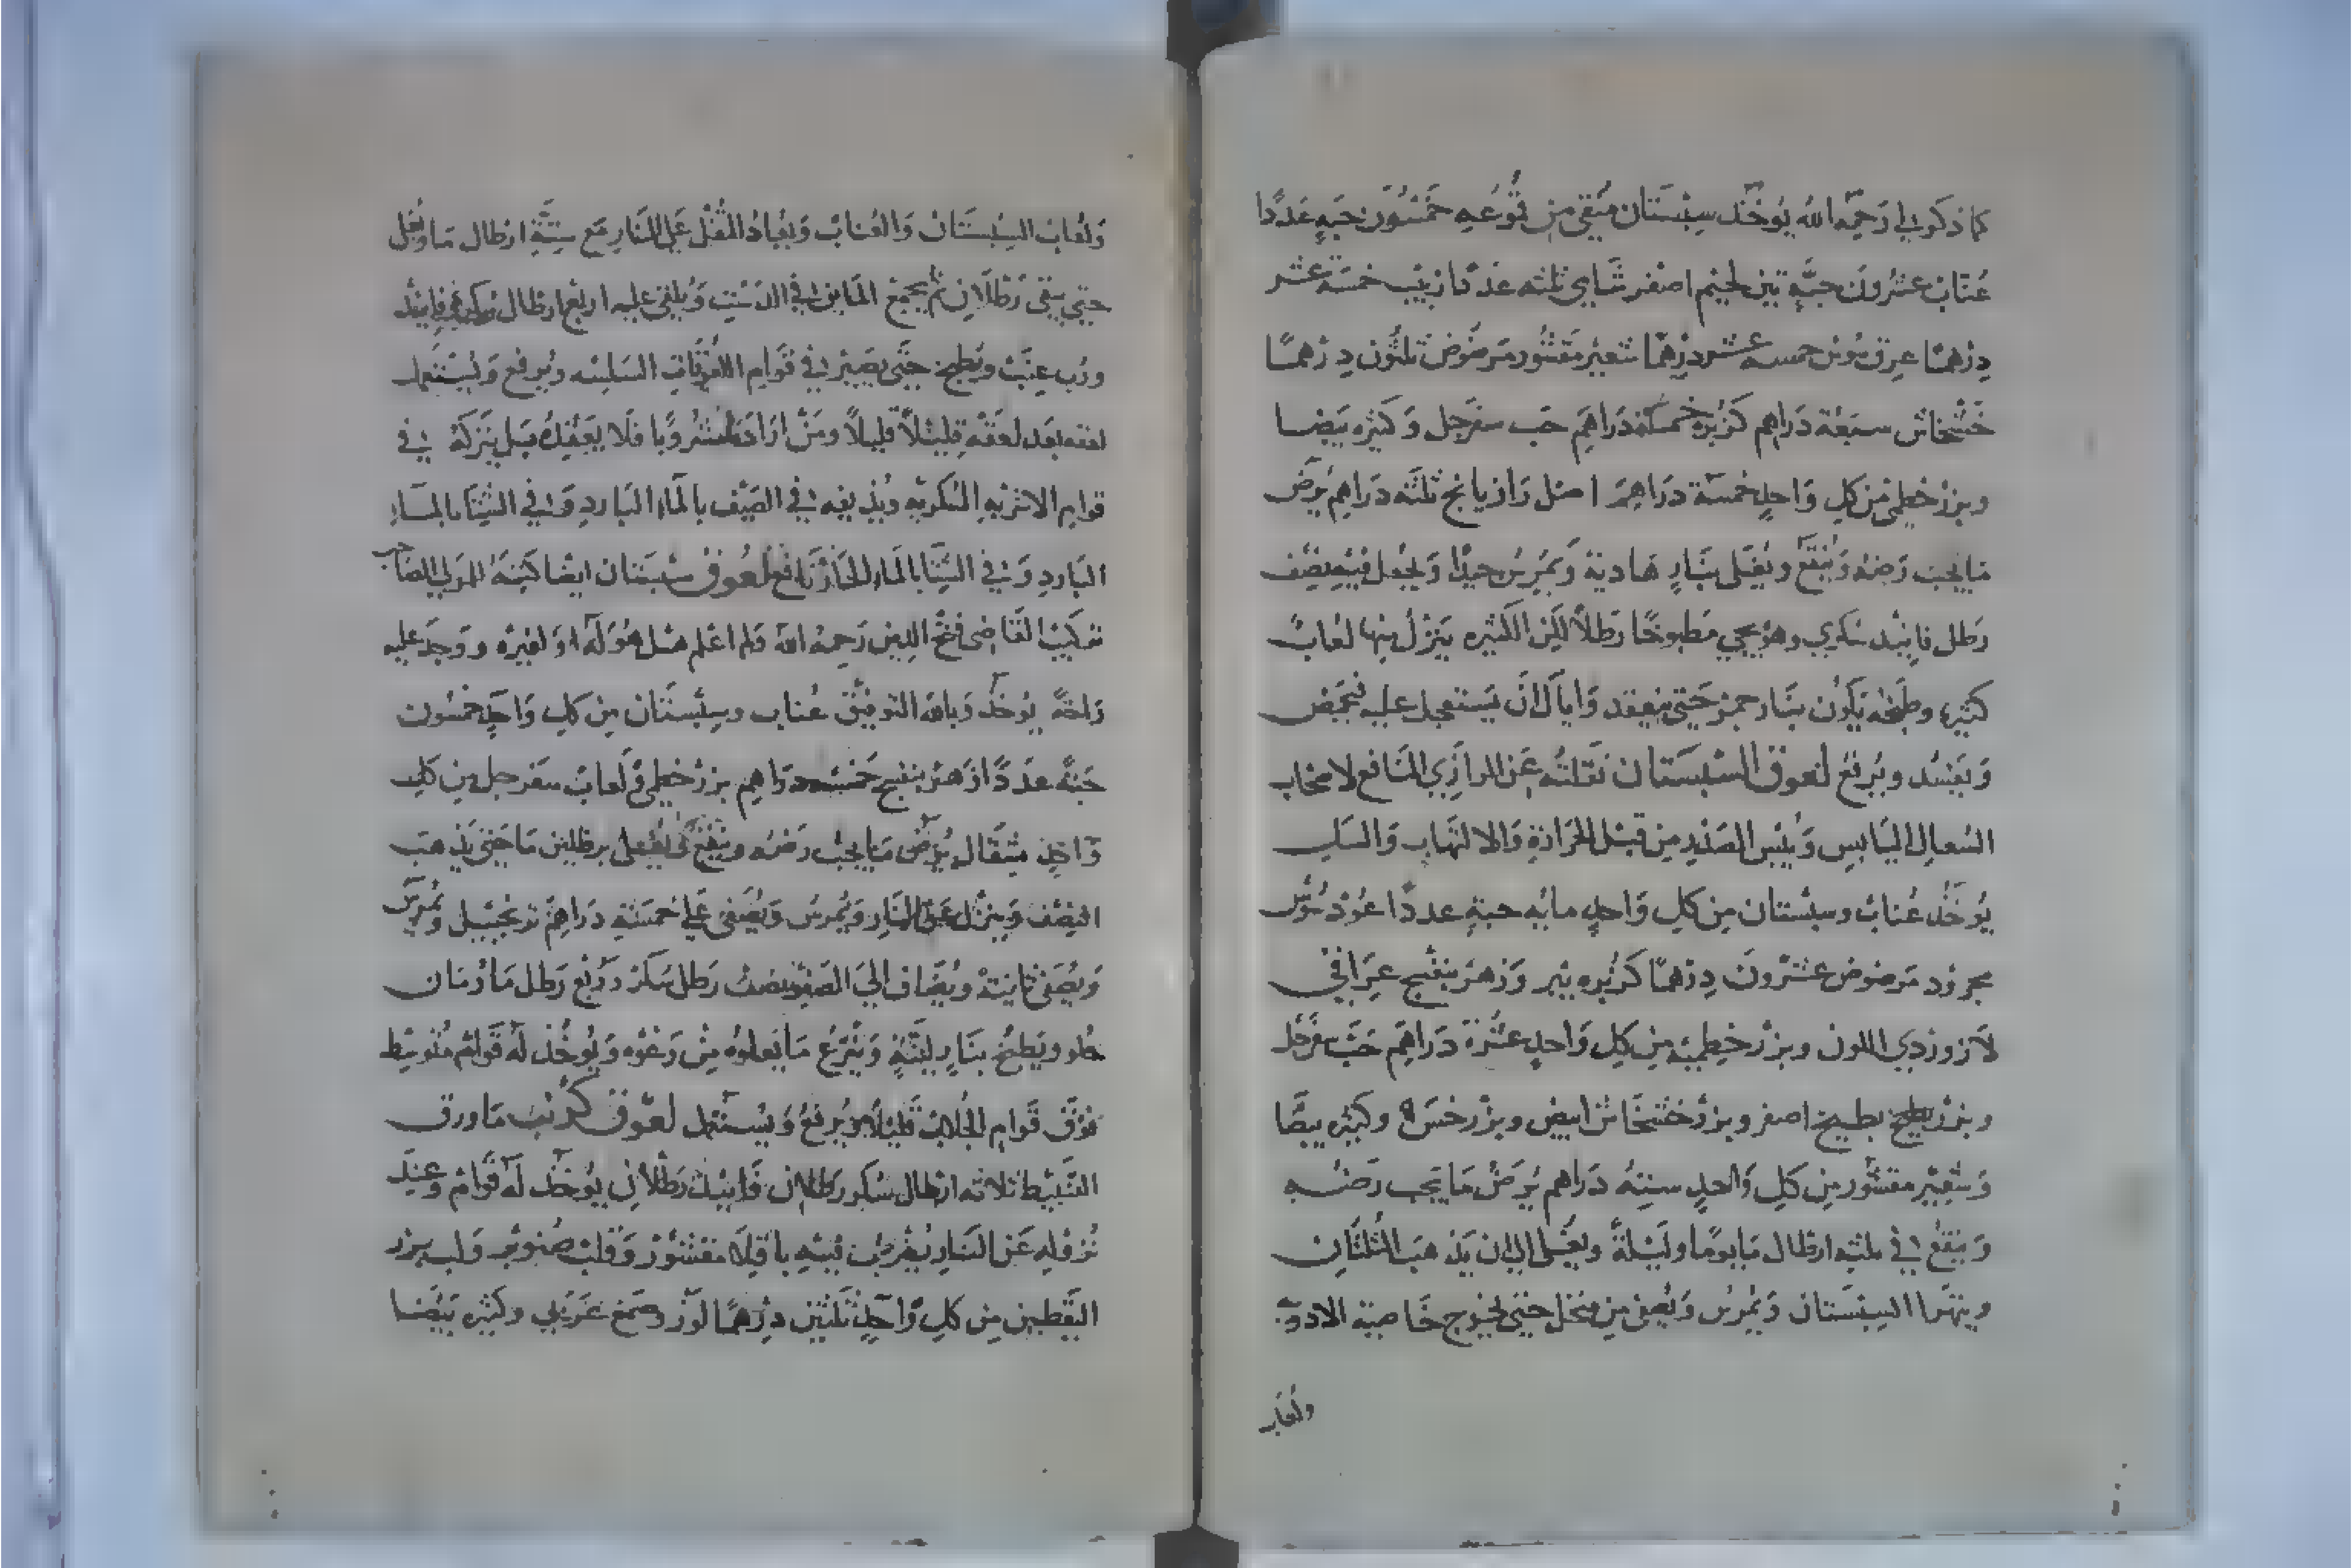 كما ذكر لي رحمه الله يوخذ سبستان منقى من قموعه خمسون حبه عددا
عناب عشرون حبة تين لحيم اصفر شامي ثلثه عددا زبيب خمسة عشر
درهما عرق سوس خمسه عشر درهما شعير مقشور مرضوض ثلثون درهما
خشخاش سبعة دراهم كزبره خمسة دراهم حب سفرجل وكثيره بيضا
وبزر خطمي من كل واحد خمسة دراهم اصل رازيانج ثلثه دراهم يرض
ما يجب رضه وينقع ويغلى بنار هادية ويمرس جيدا ويجعل فيه نصف
رطل فانيد سكري وهو يجي مطبوخا رطلا لكن الكثيره ينزل منها لعاب
كثير وطبخه يكون بنار جمر حتى ينعقد واياك ان يستعجل عليه فيحمض
ويفسد ويرفع لعوق السبستان نقلته عن الرازي النافع لاصحاب
السعال اليابس ويبس الصدر من قبل الحرارة والالتهاب والسل
يوخذ عناب وسبستان من كل واحد مايه حبة عددا عود سوس
مجرود مرضوض عشرون درهما كزبره بير وزهر بنفسج عراقي
لازوردي اللون وبزر خطميه من كل واحد عشرة دراهم حب سفرجل
وبزر بطيخ اصفر وبزر خشخاش ابيض وبزر خس وكثيره بيضا
وشعير مقشور من كل واحد ستة دراهم يرض ما يجب رضه
وينقع في ثلثه ارطال ما يوما وليلة ويغلى الى ان يذهب الثلثان
ويتهرا السبستان ويمرس ويصفى من منخل حتى تخرج خاصية الادويه
ولعاب
ولعاب السبستان والعناب ويعاد الثفل على النار مع ستة ارطال ما ويغلى
حتى يبقى رطلان ثم يجمع الماين في الدست ويلقى عليه اربع ارطال سكر فانيد
ورب عنب ويطبخ حتى يصير في قوام اللعوقات السلسه ويرفع ويستعمل
لعقه بعد لعقه قليلا قليلا ومن اراده مشروبا فلا يعقده بل يتركه في
قوام الاشربه السكريه ويذيفه في الصيف بالماء البارد وفي الشتا بالماء
البارد وفي الشتا بالماء الحار نافع لعوق سبستان ايضا كتبته للمولى الصاحب
تركيب القاضي فتح الدين رحمه الله ولم اعلم هل هو له او لغيره ووجد عليه
راحة يوخذ وبالله التوفيق عناب وسبستان من كل واحد خمسون
حبة عددا زهر بنفسج خمسه دراهم بزر خطمي ولعاب سفرجل من كل
واحد مثقال يرض ما يجب رضه وينقع ويغلى برطلين ما حتى يذهب
النصف وينزل عن النار ويمرس ويصفى على خمسة دراهم ترنجبيل ويمرس
ويصفى ثانية ويضاف الى الصفو نصف رطل سكر وربع رطل ما رمان
حلو ويطبخ بنار لينة وينزع ما يعلوه من رغوه ويوخذ له قوام متوسط
فوق قوام الجلاب قليلا ويرفع ويستعمل لعوق كرنب ما ورق
القنبيط ثلاثه ارطال سكر رطلان فانيد رطلان يوخذ له قوام وعند
نزوله عن النار يضرب فيه باقلا مقشور وقلب صنوبر ولب بزر
اليقطين من كل واحد ثلثين درهما لوز وصمغ عربي وكثيره بيضا